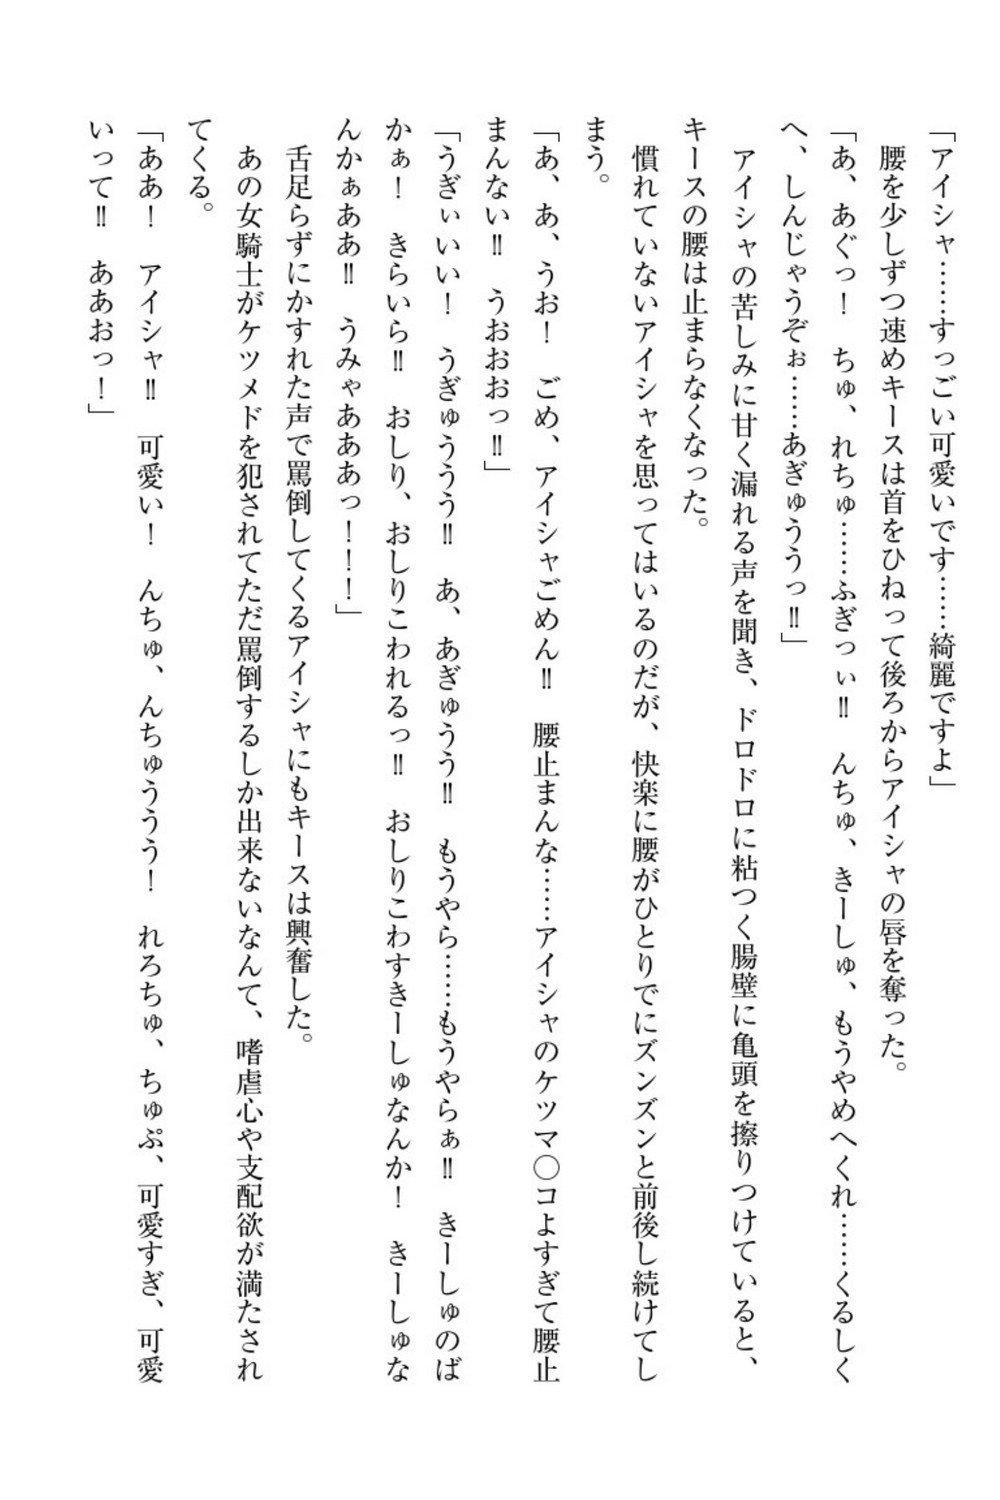 「アイシャ……すっごい可愛いです……綺麗ですよ」
　腰を少しずつ速めキースは首をひねって後ろからアイシャの唇を奪った。
「あ、あぐっ！　ちゅ、れちゅ……ふぎっぃ‼　んちゅ、きーしゅ、もうやめへくれ……くるしく
へ、しんじゃうぞぉ……あぎゅううっ‼」
　アイシャの苦しみに甘く漏れる声を聞き、ドロドロに粘つく腸壁に亀頭を擦りつけていると、
キースの腰は止まらなくなった。
　慣れていないアイシャを思ってはいるのだが、快楽に腰がひとりでにズンズンと前後し続けてし
まう。
「あ、あ、うお！　ごめ、アイシャごめん‼　腰止まんな……アイシャのケツマ〇コよすぎて腰止
まんない‼　うおおおっ‼」
「うぎぃいい！　うぎゅううう‼　あ、あぎゅうう‼　もうやら……もうやらぁ‼　きーしゅのば
かぁ！　きらいら‼　おしり、おしりこわれるっ‼　おしりこわすきーしゅなんか！　きーしゅな
んかぁああ‼　うみゃあああっ！！！」
　舌足らずにかすれた声で罵倒してくるアイシャにもキースは興奮した。
　あの女騎士がケツメドを犯されてただ罵倒するしか出来ないなんて、嗜虐心や支配欲が満たされ
てくる。
「ああ！　アイシャ‼　可愛い！　んちゅ、んちゅううう！　れろちゅ、ちゅぷ、可愛すぎ、可愛
いって‼　ああおっ！」